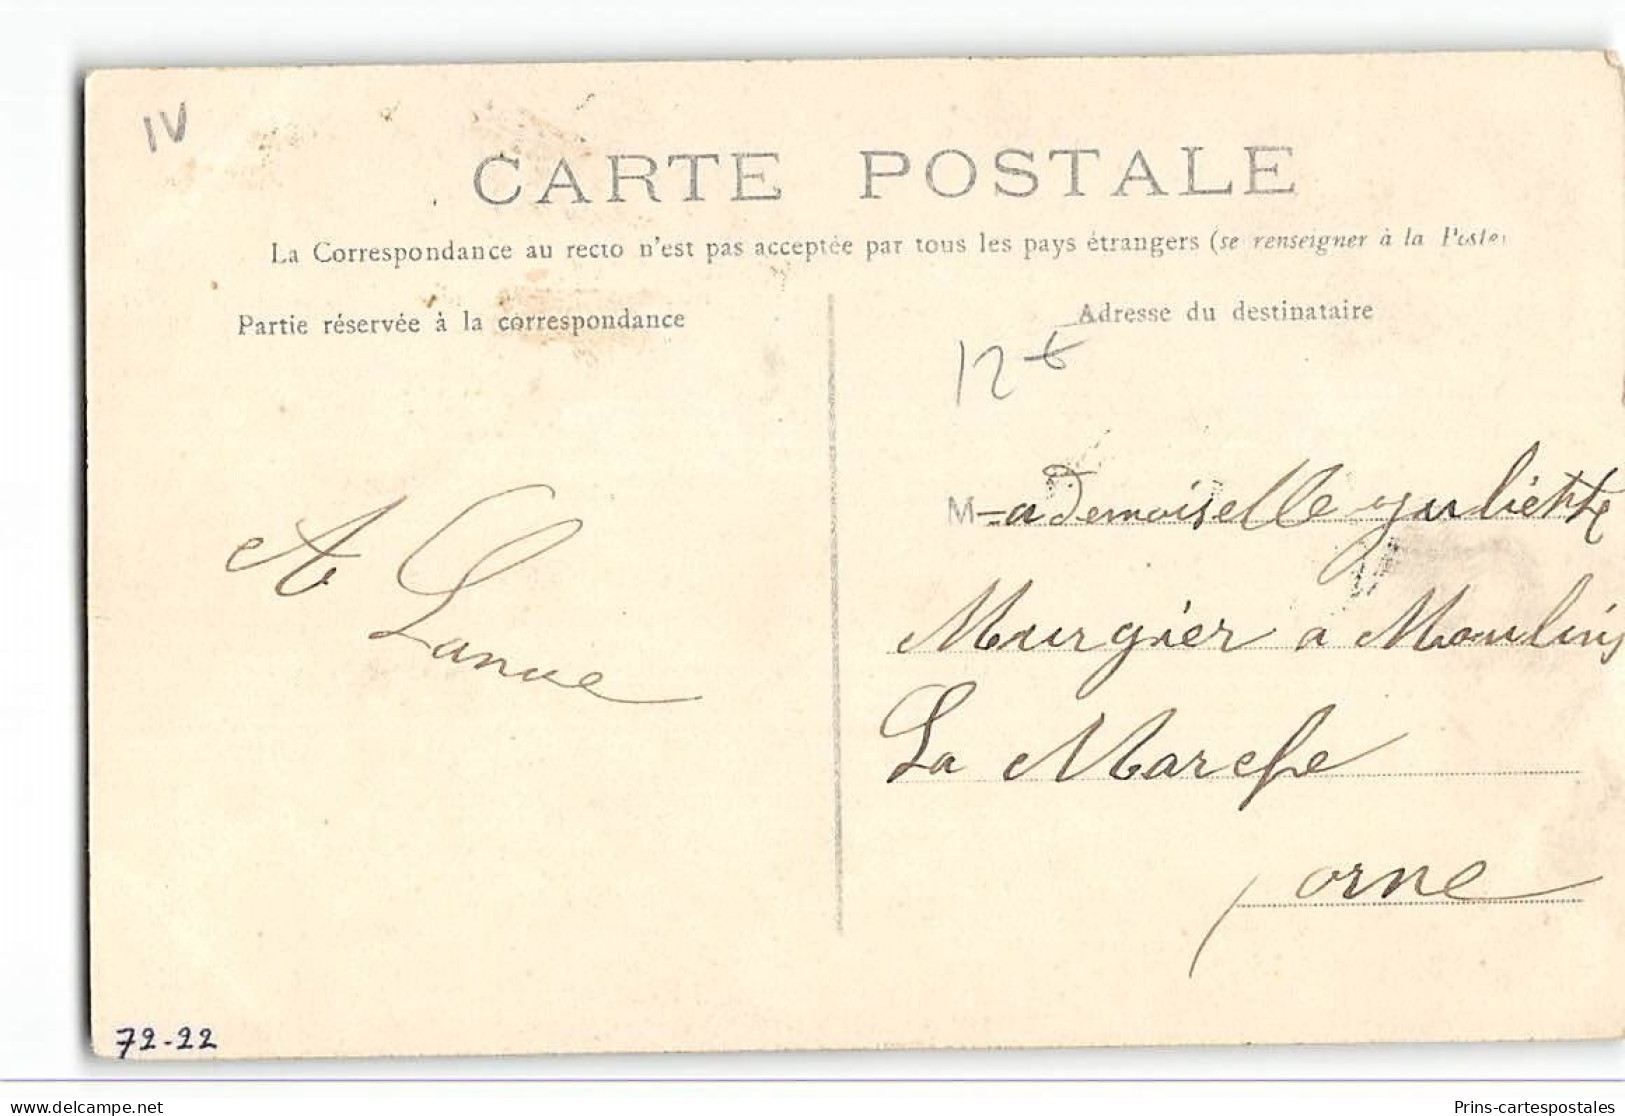 IV
CARTE POSTALE
La Correspondance au recto n'est pas acceptée par tous les pays étrangers (se renseigner à la Poste)
Partie réservée à la correspondance
Adresse du destinataire
12 €
Mademoiselle Juliette
Murgier a Moulins
La Marche
orne
A Lanoe
72-22
delcampe.net
Prins-cartespostales